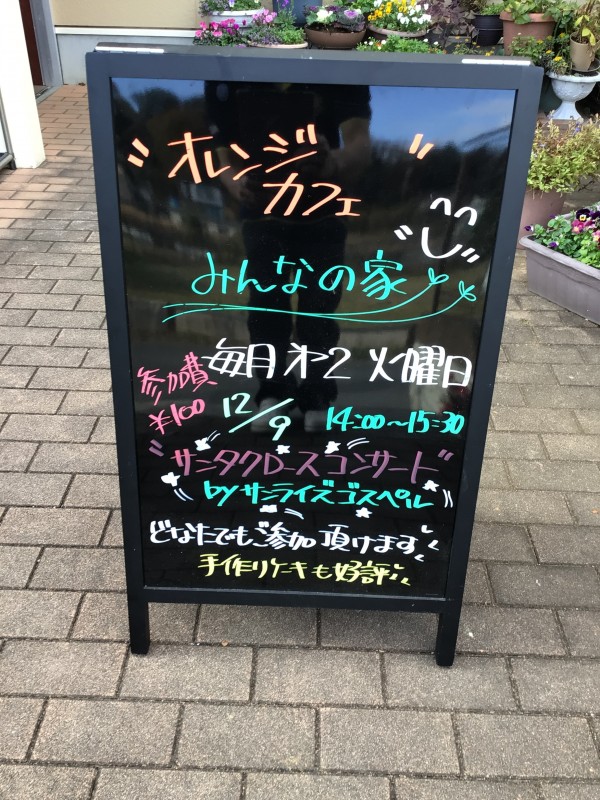 〃オレンジ〃
カフェ
みんなの家
毎月 第2 火曜日
参加費
¥100
12/9
14:00~15:30
"サンタクロースコンサート"
byサンライズゴスペル
どなたでもご参加頂けます
手作りケーキも好評